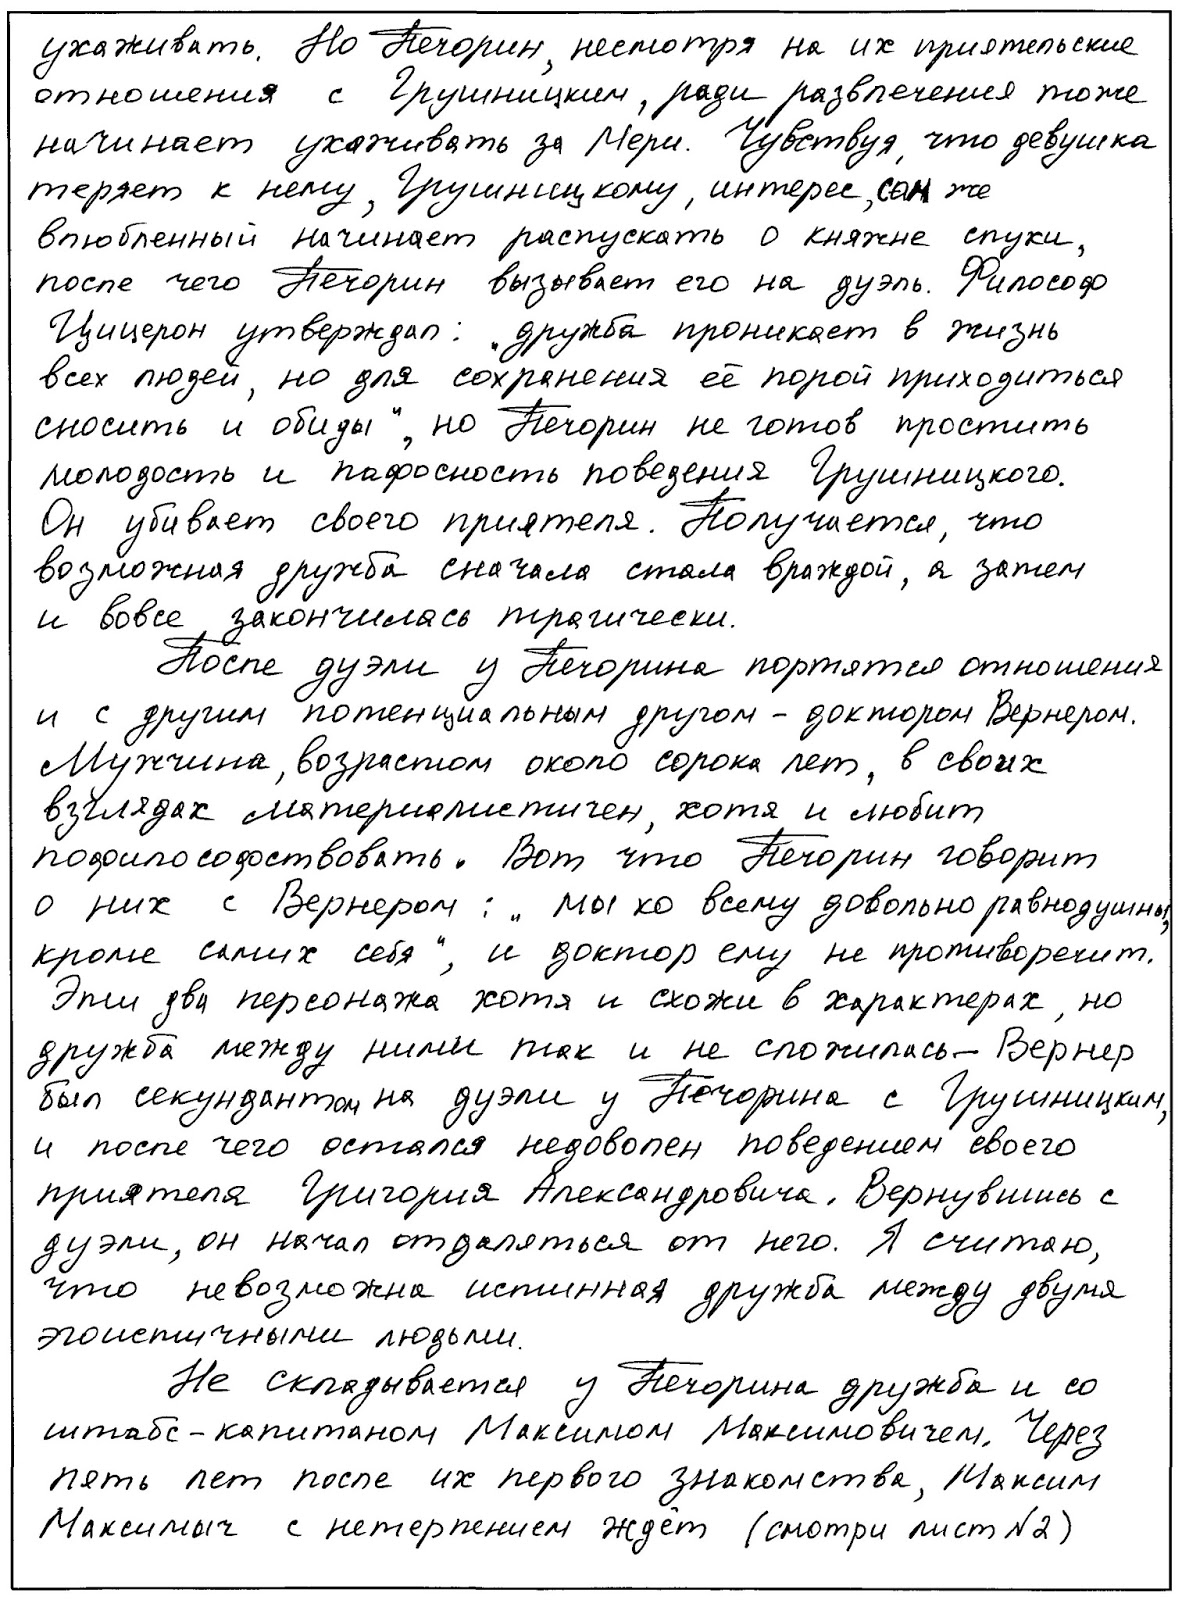 ухаживать. Но Печорин, несмотря на их приятельские
отношения с Грушницким, ради развлечения тоже
начинает ухаживать за Мери. Чувствуя, что девушка
теряет к нему, Грушницкому, интерес, сам же
влюбленный начинает распускать о княжне слухи,
после чего Печорин вызывает его на дуэль. Философ
Цицерон утверждал: „дружба проникает в жизнь
всех людей, но для сохранения её порой приходиться
сносить и обиды“, но Печорин не готов простить
молодость и пафосность поведения Грушницкого.
Он убивает своего приятеля. Получается, что
возможная дружба сначала стала враждой, а затем
и вовсе закончилась трагически.
После дуэли у Печорина портятся отношения
и с другим потенциальным другом – доктором Вернером.
Мужчина, возрастом около сорока лет, в своих
взглядах материалистичен, хотя и любит
пофилософствовать. Вот что Печорин говорит
о них с Вернером: „мы ко всему довольно равнодушны,
кроме самих себя“, и доктор ему не противоречит.
Эти два персонажа хотя и схожи в характерах, но
дружба между ними так и не сложилась – Вернер
был секундантом на дуэли у Печорина с Грушницким,
и после чего остался недоволен поведением своего
приятеля Григория Александровича. Вернувшись с
дуэли, он начал отдаляться от него. Я считаю,
что невозможна истинная дружба между двумя
эгоистичными людьми.
Не складывается у Печорина дружба и со
штабс-капитаном Максимом Максимовичем. Через
пять лет после их первого знакомства, Максим
Максимыч с нетерпением ждёт (смотри лист №2)